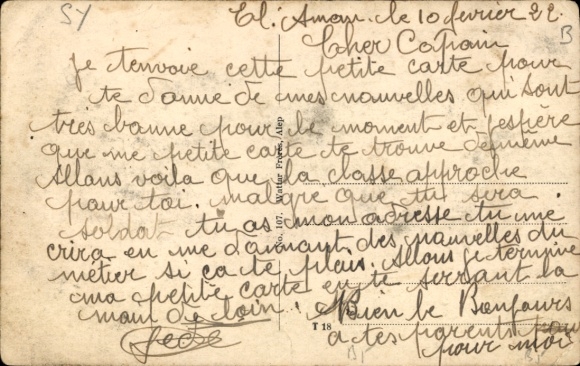 SY
El. Aman. le 10 février 22.
B
Cher Copain
je t'envoie cette petite carte pour
te donné de mes nouvelles qui sont
très bonne pour le moment et j'espère
que me petite carte te trouve de même
Allons voila que la classe approche
pour toi. malgre que tu sera
soldat tu as mon adresse tu me
crira en me donnant des nouvelles du
métier si ça te plais. Allons je termine
ma petite carte en te serrant la
main de loin.
Bien le Bonjours
a tes parents
pour moi
No. 107. Wattar Frères, Alep
T 18